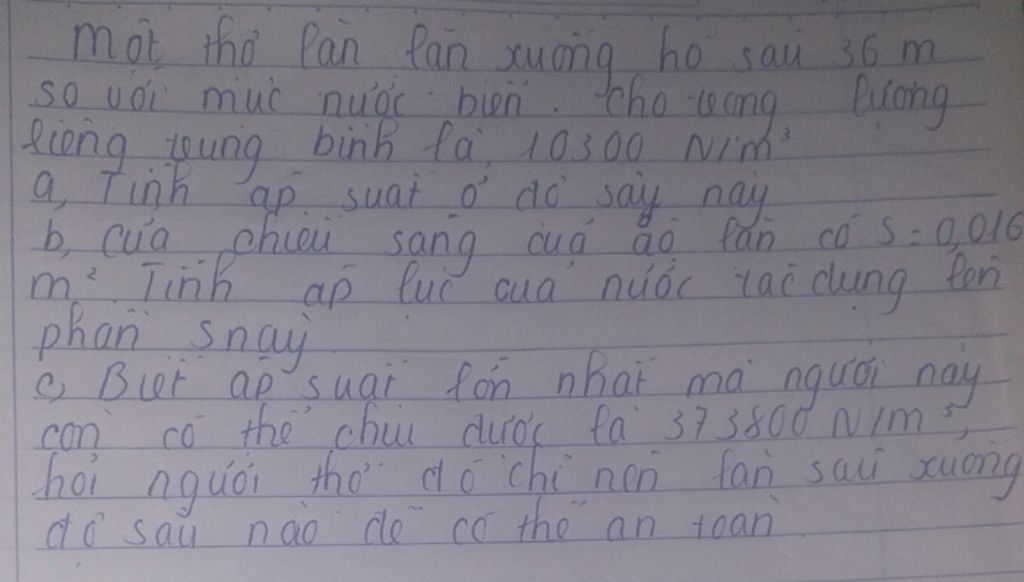 Một thợ lặn lặn xuống hồ sâu 36 m
so với mức nước biển. Cho trọng lượng
riêng trung bình là 10300 N/m³
a, Tính áp suất ở độ sâu này
b, Cửa chiếu sáng của áo lặn có S = 0,016
m² Tính áp lực của nước tác dụng lên
phần S này
c, Biết áp suất lớn nhất mà người này
còn có thể chịu được là 373800 N/m³,
hỏi người thợ đó chỉ nên lặn sâu xuống
độ sâu nào để có thể an toàn